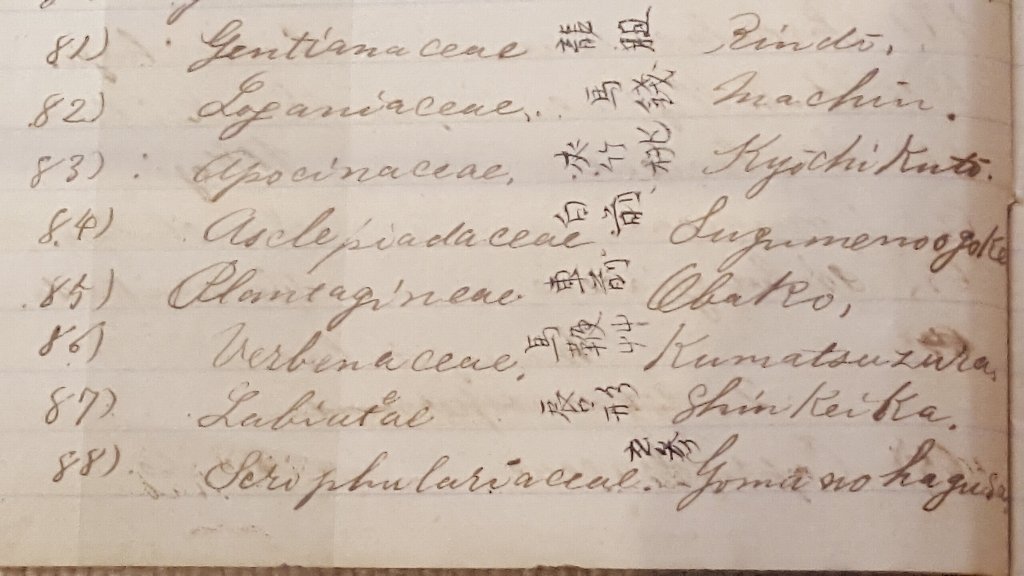 81) Gentianaceae 龍胆 Rindō.
82) Loganiaceae. 馬錢 Machin.
83) Apocinaceae. 夾竹桃 Kyōchikutō.
84) Asclepiadaceae 白前 Suzumenoogoke
85) Plantagineae 車前 Obako,
86) Verbenaceae, 馬鞭艸 Kumatsuzura.
87) Labiatae 唇形 Shinkeika.
88) Scrophulariaceae. 玄参 Gomanohagusa